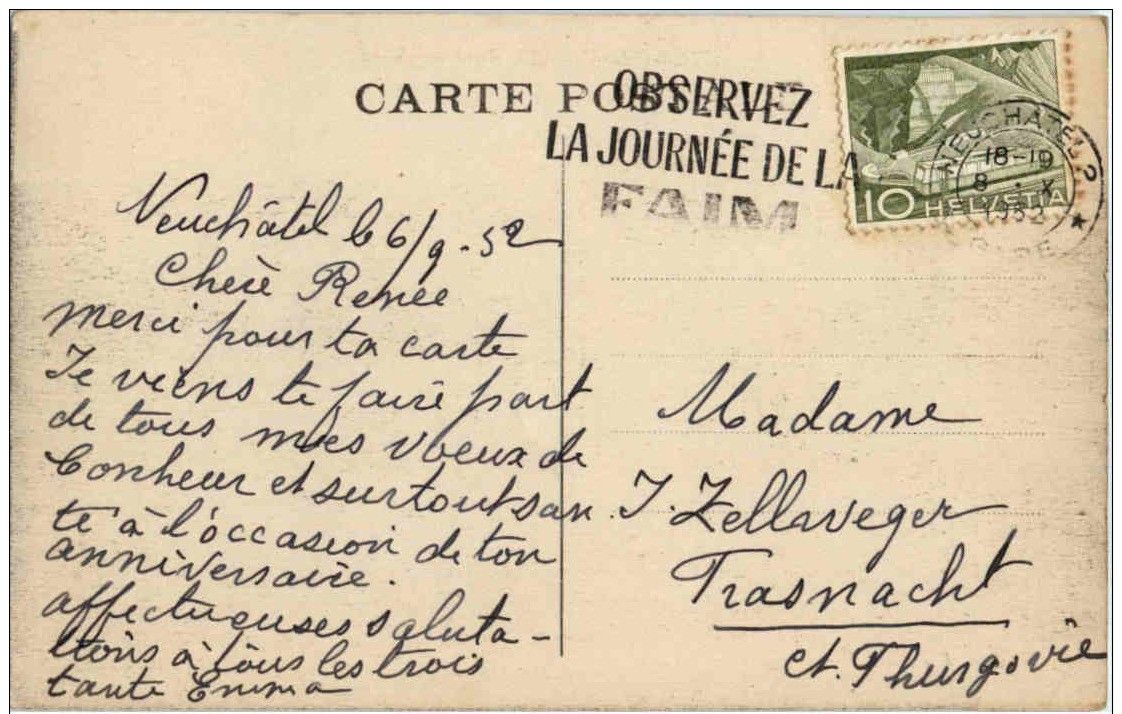 CARTE POSTALE
OBSERVEZ
LA JOURNÉE DE LA
FAIM
10 HELVETIA
NEUCHÂTEL 2
18-19
8 . X
1952
Neuchâtel le 6/9 - 52
Chère Renée
merci pour ta carte
Je viens te faire part
de tous mes voeux de
bonheur et surtout san
té à l'occasion de ton
anniversaire.
affectueuses saluta-
tions à tous les trois
tante Emma
Madame
J. Zellweger
Frasnacht
ct. Thurgovie